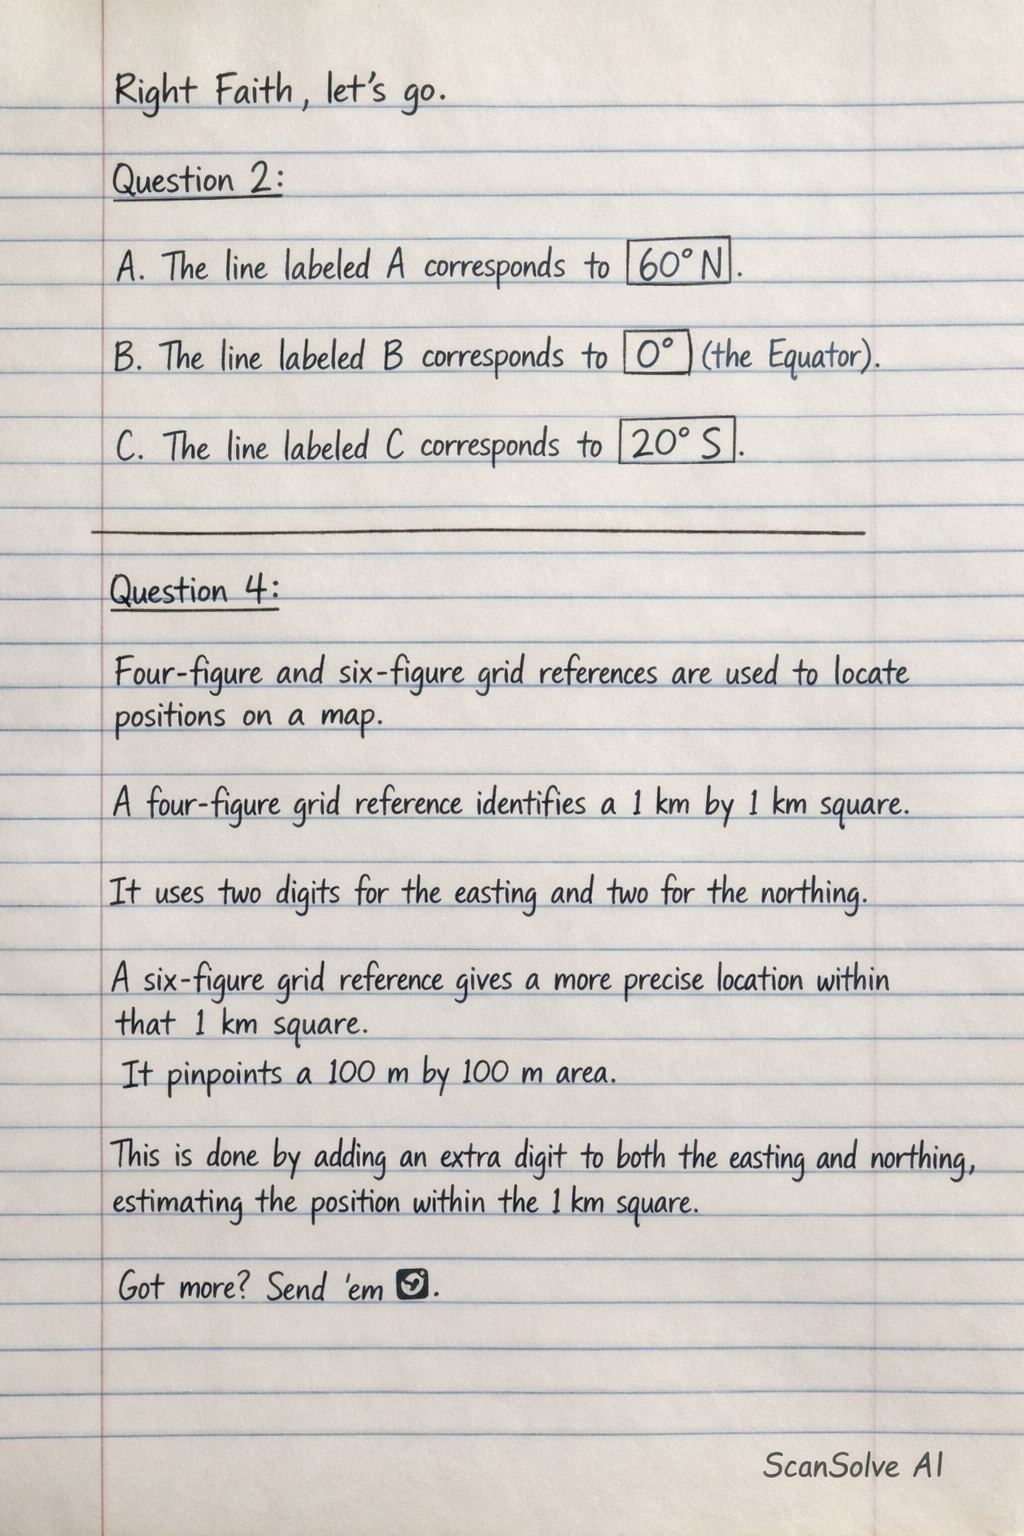 Right Faith, let's go.
Question 2:
A. The line labeled A corresponds to 60° N.
B. The line labeled B corresponds to 0° (the Equator).
C. The line labeled C corresponds to 20° S.
Question 4:
Four-figure and six-figure grid references are used to locate
positions on a map.
A four-figure grid reference identifies a 1 km by 1 km square.
It uses two digits for the easting and two for the northing.
A six-figure grid reference gives a more precise location within
that 1 km square.
It pinpoints a 100 m by 100 m area.
This is done by adding an extra digit to both the easting and northing,
estimating the position within the 1 km square.
Got more? Send 'em .
ScanSolve AI